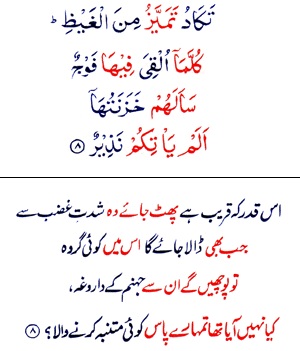 تَكَادُ تَمَيَّزُ مِنَ الْغَيْظِ ؕ
كُلَّمَاۤ اُلْقِیَ فِيْهَا فَوْجٌ
سَاَلَهُمْ خَزَنَتُهَاۤ
اَلَمْ يَاْتِكُمْ نَذِيْرٌ ﴿۸﴾
اس قدر کہ قریب ہے پھٹ جائے وہ شدتِ غضب سے
جب بھی ڈالا جائے گا اس میں کوئی گروہ
تو پوچھیں گے ان سے جہنم کے داروغہ،
کیا نہیں آیا تھا تمہارے پاس کوئی متنبہ کرنے والا؟ ﴿۸﴾